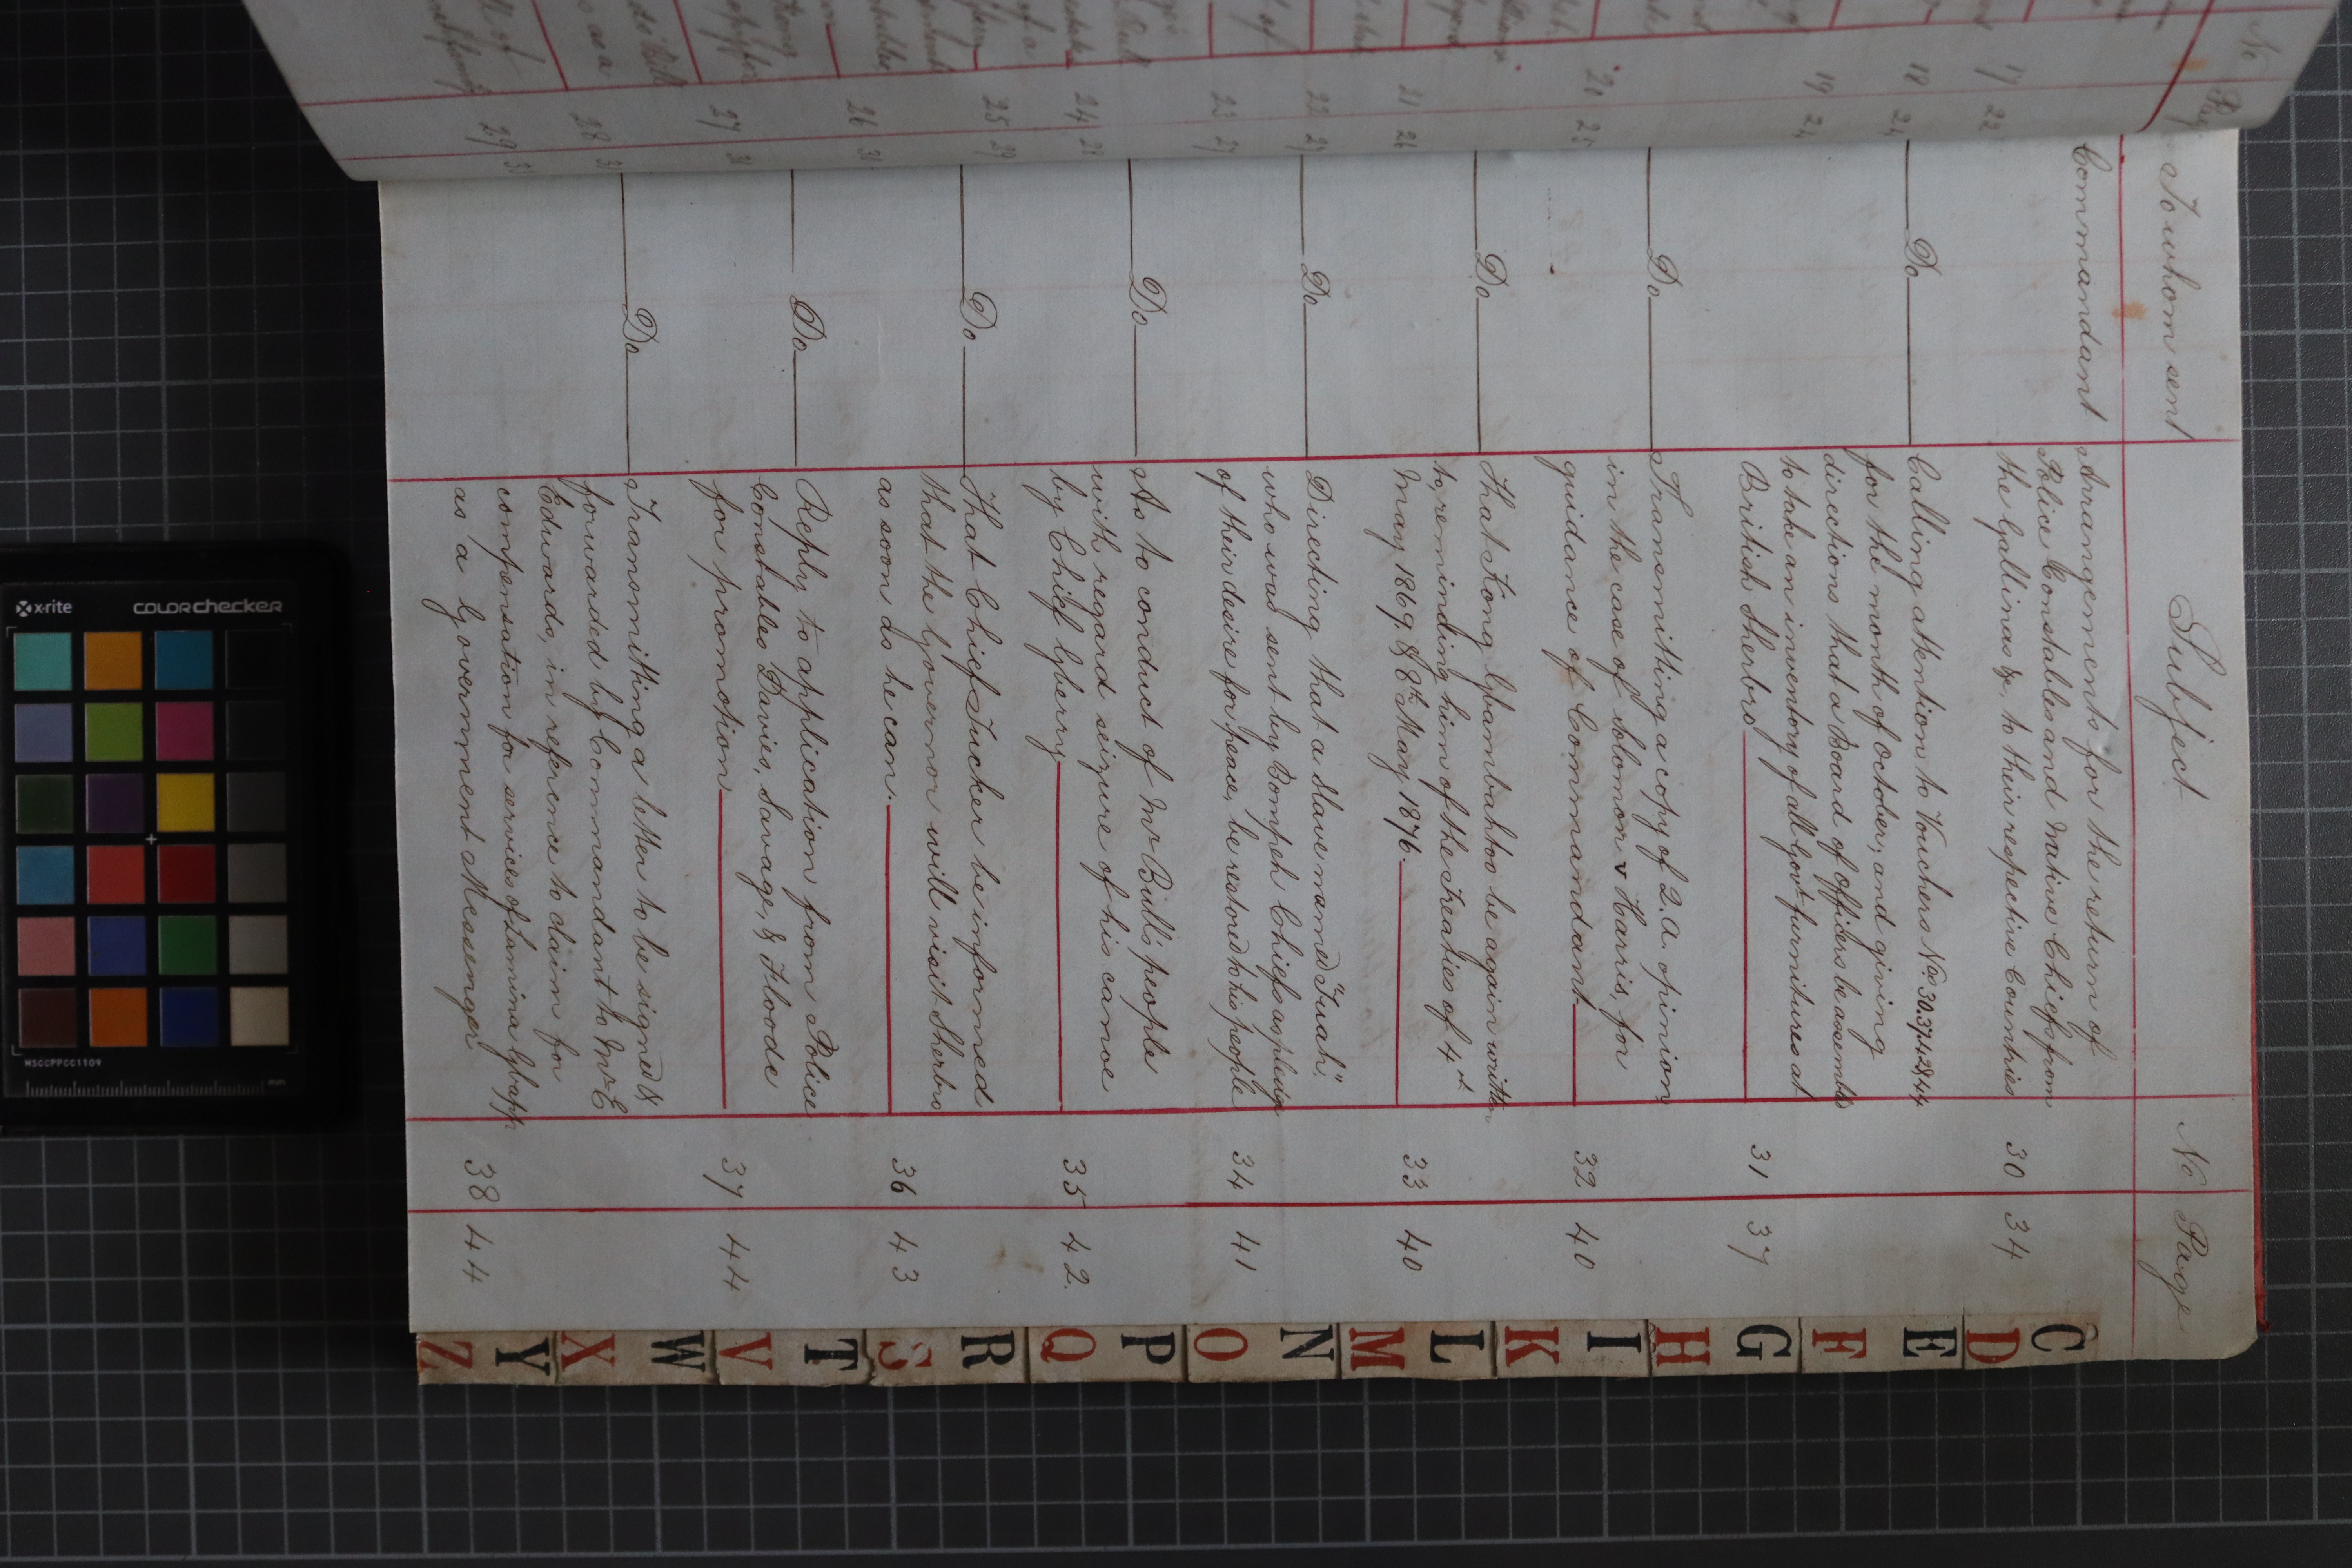 To whom sent Subject No Page
Commandant Arrangements for the return of
Police Constables and Native Chiefs from
the Gallinas &c, to their respective Countries 30 34
Do Calling attention to Vouchers Nos 30.37.42&44
for the month of October, and giving
directions that a Board of Officers be assembled
to take an inventory of all Govt furnitures at
British Sherbro 31 37
Do Transmitting a copy of 2.A. opinion
in the case of Solomon v Harris, for
guidance of Commandant 32 40
Do That King Gbambahtoo be again written
to reminding him of the Treaties of 4th
May 1869, & 8th May 1876. 33 40
Do Directing that a slave named "Tuah",
who was sent by Bompeh Chiefs as pledge
of their desire for peace, be restored to his people 34 41
Do As to conduct of Mr Bull's people
with regard seizure of his canoe
by Chief Gberry 35 42.
Do That Chief Tucker be informed
that the Governor will visit Sherbro
as soon as he can. 36 43
Do Reply to application from Police
Constables Davies, Savage, & Floode
for promotion 37 44
Do Transmitting a letter to be signed &
forwarded by Commandant to Mr E
Edwards, in reference to claim for
compensation for services of Lamina Gbapp
as a Government Messenger 38 44
No Page
17 22
18 24
19 24
20 25
21 26
22 27
23 27
24 28
25 29
26 31
27 31
28
29
C
D
E
F
G
H
I
K
L
M
N
O
P
Q
R
S
T
V
W
X
Y
Z
x-rite colorchecker
MSCCPPCC1109
mm